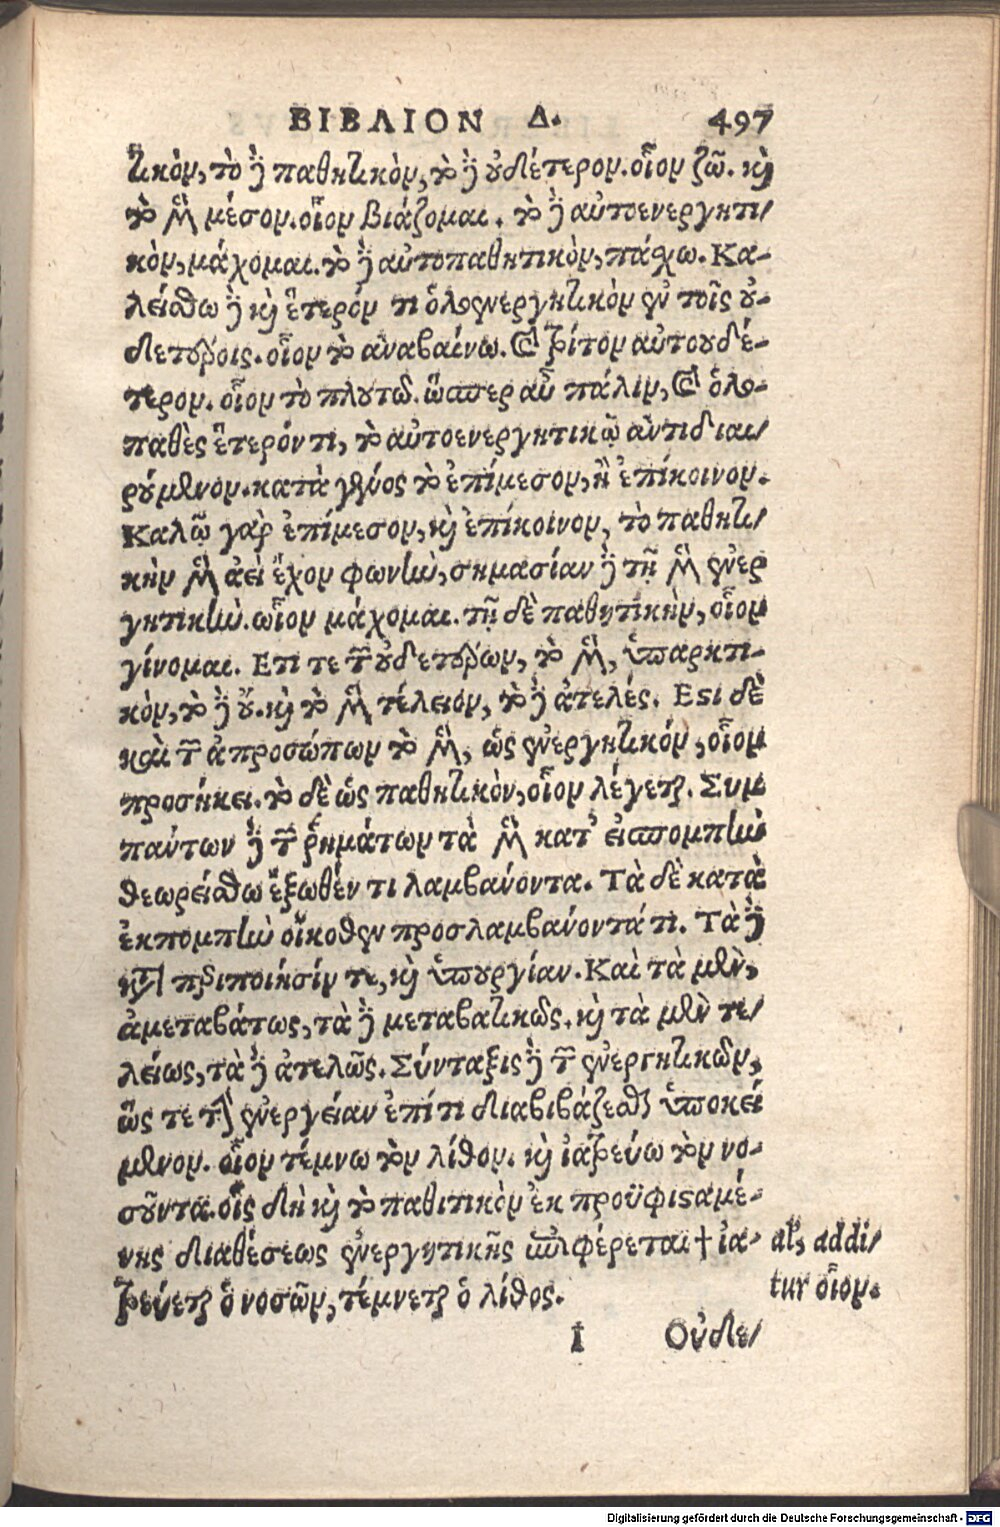 ΒΙΒΛΙΟΝ Δ. 497
τικὸν, τὸ δὲ παθητικὸν, τὸ δὲ οὐδέτερον. οἷον ζῶ. καὶ
τὸ μὲν μέσον. οἷον βιάζομαι. τὸ δὲ αὐτοενεργητι/
κὸν, μάχομαι. τὸ δὲ αὐτοπαθητικὸν, πάσχω. Κα-
λείσθω δὲ καὶ ἕτερόν τι ὁλοενεργητικὸν ἐν τοῖς οὐ-
δετέροις. οἷον τὸ ἀναβαίνω. καὶ τρίτον αὐτουδέ-
τερον. οἷον τὸ πλουτῶ. ὥσπερ αὖ πάλιν, καὶ ὁλο-
παθὲς ἕτερόν τι, τὸ αὐτοενεργητικῷ ἀντιδιαι/
ρούμενον. κατὰ γένος τὸ ἐπίμεσον, ἢ ἐπίκοινον.
Καλῶ γὰρ ἐπίμεσον, καὶ ἐπίκοινον, τὸ παθητι/
κὴν μὲν ἀεὶ ἔχον φωνὴν, σημασίαν δὲ τῇ μὲν ἐνερ
γητικὴν. ὡἷον μάχομαι. τῇ δὲ παθητικὴν, οἷον
γίνομαι. Ετι τε τῶν οὐδετέρων, τὸ μὲν, ὑπαρκτι-
κὸν, τὸ δὲ οὔ. καὶ τὸ μὲν τέλειον, τὸ δὲ ἀτελές. Εστι δὲ
καὶ τῶν ἀπροσώπων τὸ μὲν, ὡς ἐνεργητικόν, οἷον
προσήκει. τὸ δὲ ὡς παθητικὸν, οἷον λέγεται. Συμ
πάντων δὲ τῶν ῥημάτων τὰ μὲν κατ' εἰσπομπὴν
θεωρείσθω ἔξωθέν τι λαμβάνοντα. Τὰ δὲ κατὰ
ἐκπομπὴν οἴκοθεν προσλαμβάνοντά τι. Τὰ δὲ
κατὰ περιποίησίν τε, καὶ ὑπουργίαν. Καὶ τὰ μὲν,
ἀμεταβάτως, τὰ δὲ μεταβατικῶς. καὶ τὰ μὲν τε/
λείως, τὰ δὲ ἀτελῶς. Σύνταξις δὲ τῶν ἐνεργητικῶν,
ὥς τε τὴν ἐνεργείαν ἐπί τι διαβιβάζεσθαι ὑποκεί
μενον. οἷον τέμνω τὸν λίθον. καὶ ἰατρεύω τὸν νο-
σοῦντα. οἷς δὴ καὶ τὸ παθιτικὸν ἐκ προϋφισταμέ-
νης διαθέσεως ἐνεργητικῆς ἐπιφέρεται † ἰα-
τρεύεται ὁ νοσῶν, τέμνεται ὁ λίθος.
al', addi/
tur οἷον.
I Οὐδε/
Digitalisierung gefördert durch die Deutsche Forschungsgemeinschaft - DFG